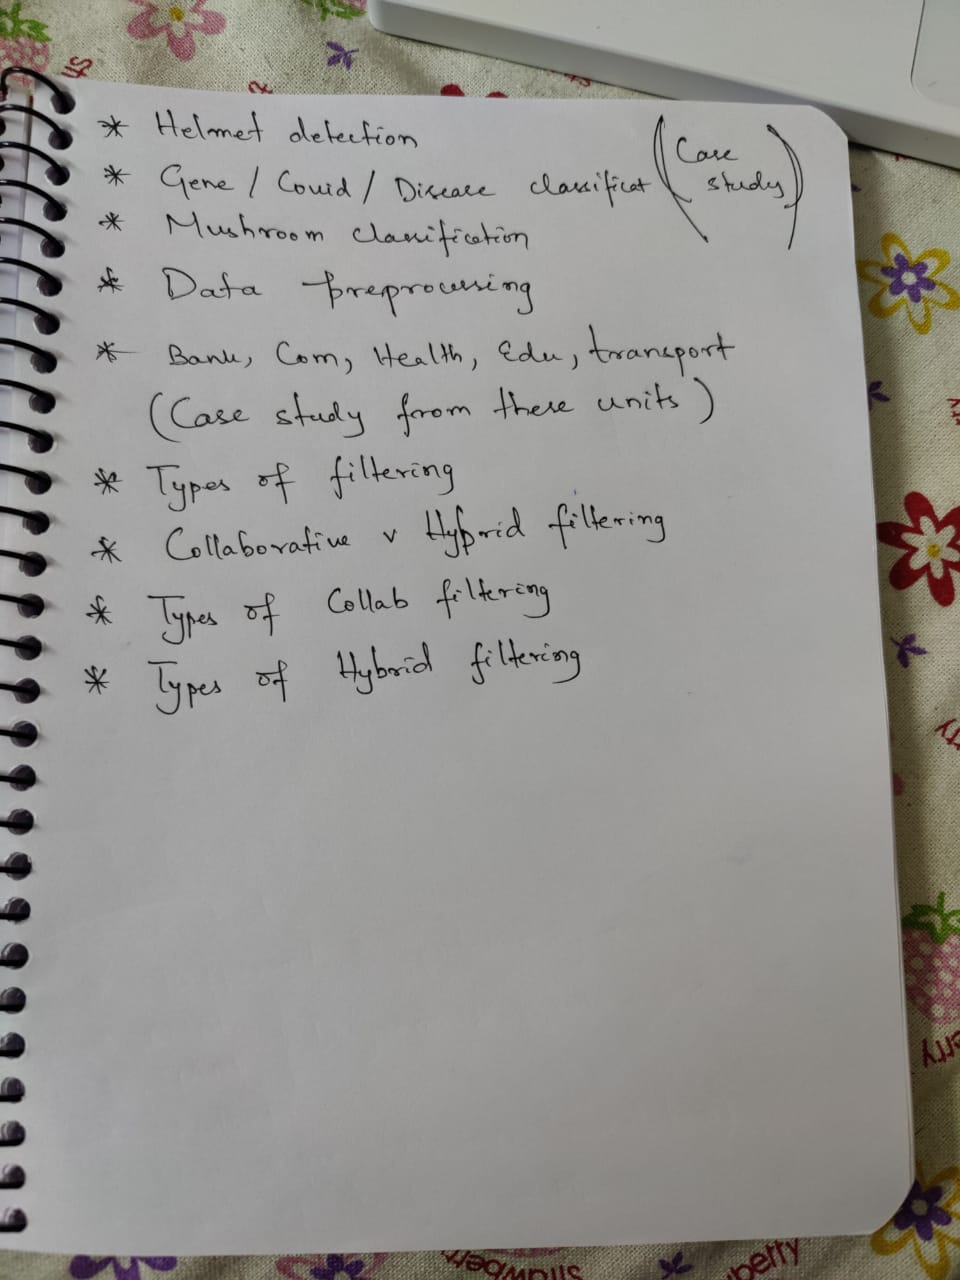 * Helmet detection
* Gene / Covid / Disease classificat (Case study)
* Mushroom classification
* Data preprocessing
* Bank, Com, Health, Edu, transport
(Case study from these units)
* Types of filtering
* Collaborative v Hybrid filtering
* Types of Collab filtering
* Types of Hybrid filtering
strawberry
berry
erry